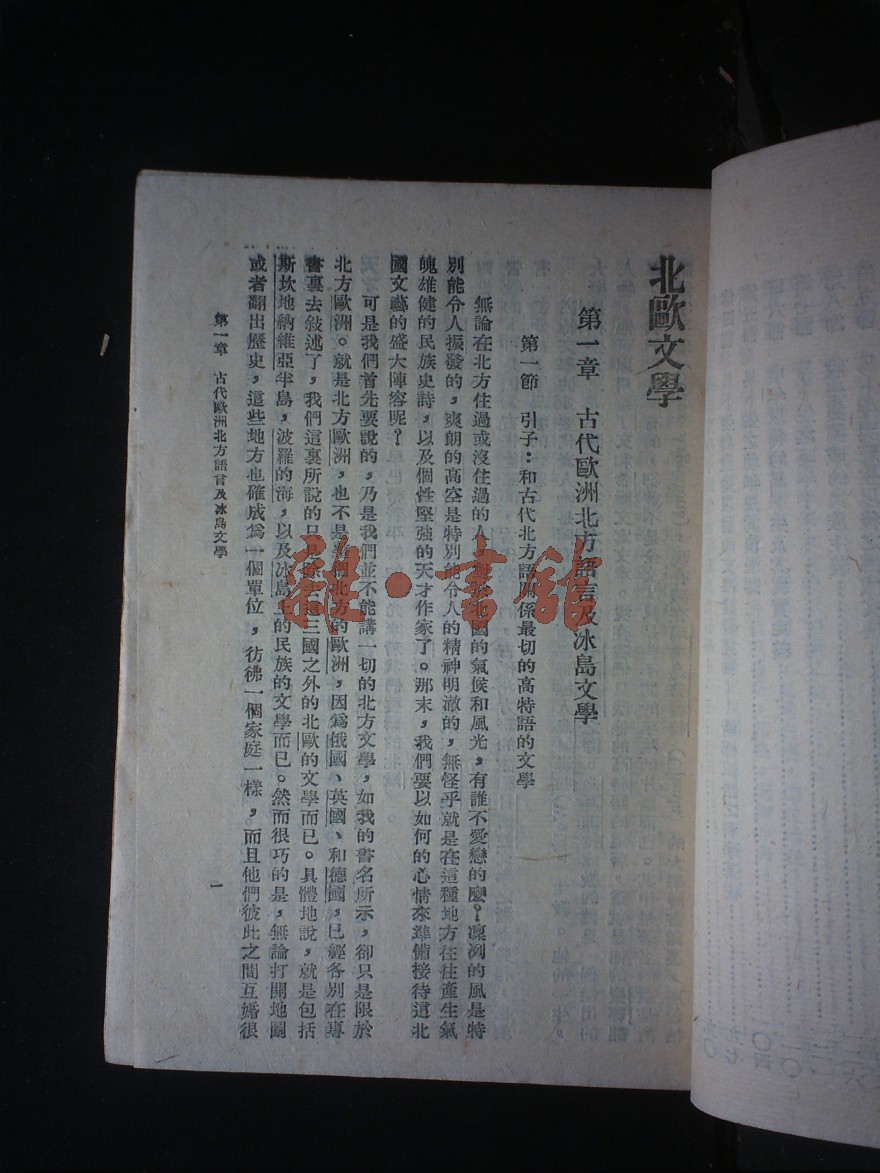 北歐文學
第一章　古代歐洲北方語言及冰島文學
第一節　引子：和古代北方語關係最切的高特語的文學
無論在北方住過或沒住過的人，對於北國的氣候和風光，有誰不愛戀的麼？凜冽的風是特
別能令人振發的，爽朗的高空是特別能令人的精神明澈的，無怪乎就是在這種地方往往產生氣
魄雄健的民族史詩，以及個性堅強的天才作家了。那末，我們要以如何的心情來準備接待這北
國文藝的盛大陣容呢？
可是我們首先要說的，乃是我們並不能講一切的北方文學，如我的書名所示，卻只是限於
北方歐洲。就是北方歐洲，也不是整個北方的歐洲，因爲俄國、英國、和德國，已經各別在專
書裏去敍述了，我們這裏所說的只是除去這三國之外的北歐的文學而已。具體地說，就是包括
斯坎地納維亞半島，波羅的海，以及冰島上的民族的文學而已。然而很巧的是，無論打開地圖
或者翻出歷史，這些地方也確成爲一個單位，彷彿一個家庭一樣，而且他們彼此之間互婚很
第一章　古代歐洲北方語言及冰島文學
一
雜·書館